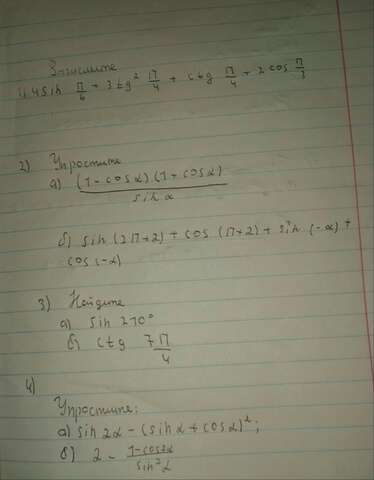 Вычислите
1) 4 sin π/6 + 3 tg² π/4 + ctg π/4 + 2 cos π/3
2) Упростите
а) (1 - cos α)(1 + cos α)
sin α
б) sin (2π+2) + cos (π+2) + sin (-α) +
cos (-α)
3) Найдите
а) sin 270°
б) ctg 7π/4
4)
Упростите:
а) sin 2α - (sin α + cos α)²;
б) 2 - 1-cos2α/sin²α